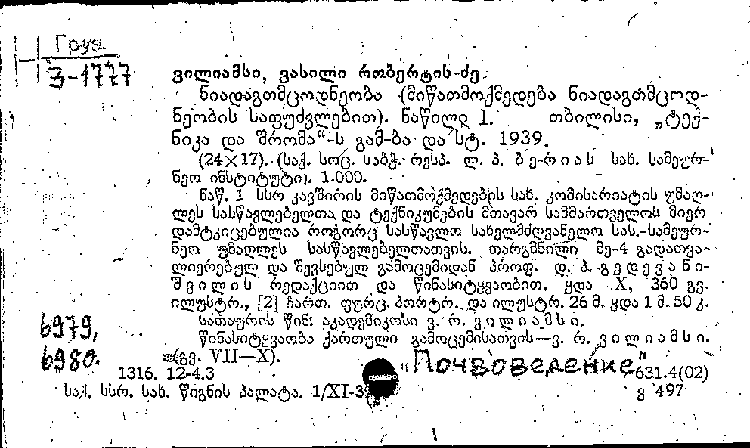 Груз.
З-1777
ვილიამსი, ვასილი რობერტის-ძე.
ნიადაგთმცოდნეობა (მიწათმოქმედება ნიადაგთმცოდ-
ნეობის საფუძვლებით). ნაწილი 1. თბილისი, „ტექ-
ნიკა და შრომა“-ს გამ-ბა და სტ. 1939.
(24×17). (საქ. სოც. საბჭ. რესპ. ლ. პ. ბერიას სახ. სამეურ-
ნეო ინსტიტუტი). 1.000.
ნაწ. 1 სსრ კავშირის მიწათმოქმედების სახ. კომისარიატის უმაღ-
ლეს სასწავლებელთა და ტექნიკუმების მთავარ სამმართველოს მიერ
დამტკიცებულია როგორც სასწავლო სახელმძღვანელო სას.-სამეურ-
ნეო უმაღლეს სასწავლებელთათვის. თარგმნილი მე-4 გადათვა-
ლიერებულ და შევსებულ გამოცემიდან პროფ. დ. პ. გედევანი-
შვილის რედაქციით და წინასიტყვაობით. ყდა X, 360 გვ.
ილუსტრ., [2] ჩართ. ფურც. პორტრ. და ილუსტრ. 26 მ. ყდა 1 მ. 50 კ.
სათაურის წინ: აკადემიკოსი ვ. რ. ვილიამსი.
წინასიტყვაობა ქართული გამოცემისათვის—ვ. რ. ვილიამსი.
(გვ. VII—X).
6979,
6980.
"Почвоведение"
1316. 12-4.3 631.4(02)
საქ. სსრ. სახ. წიგნის პალატა. 1/XI-3 გ 497